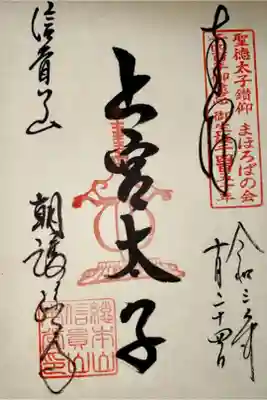 奉拝
聖徳太子讃仰 まほろばの会
令和三年
十月二十四日
上宮太子
信貴山
朝護孫子寺
總本山
信貴山